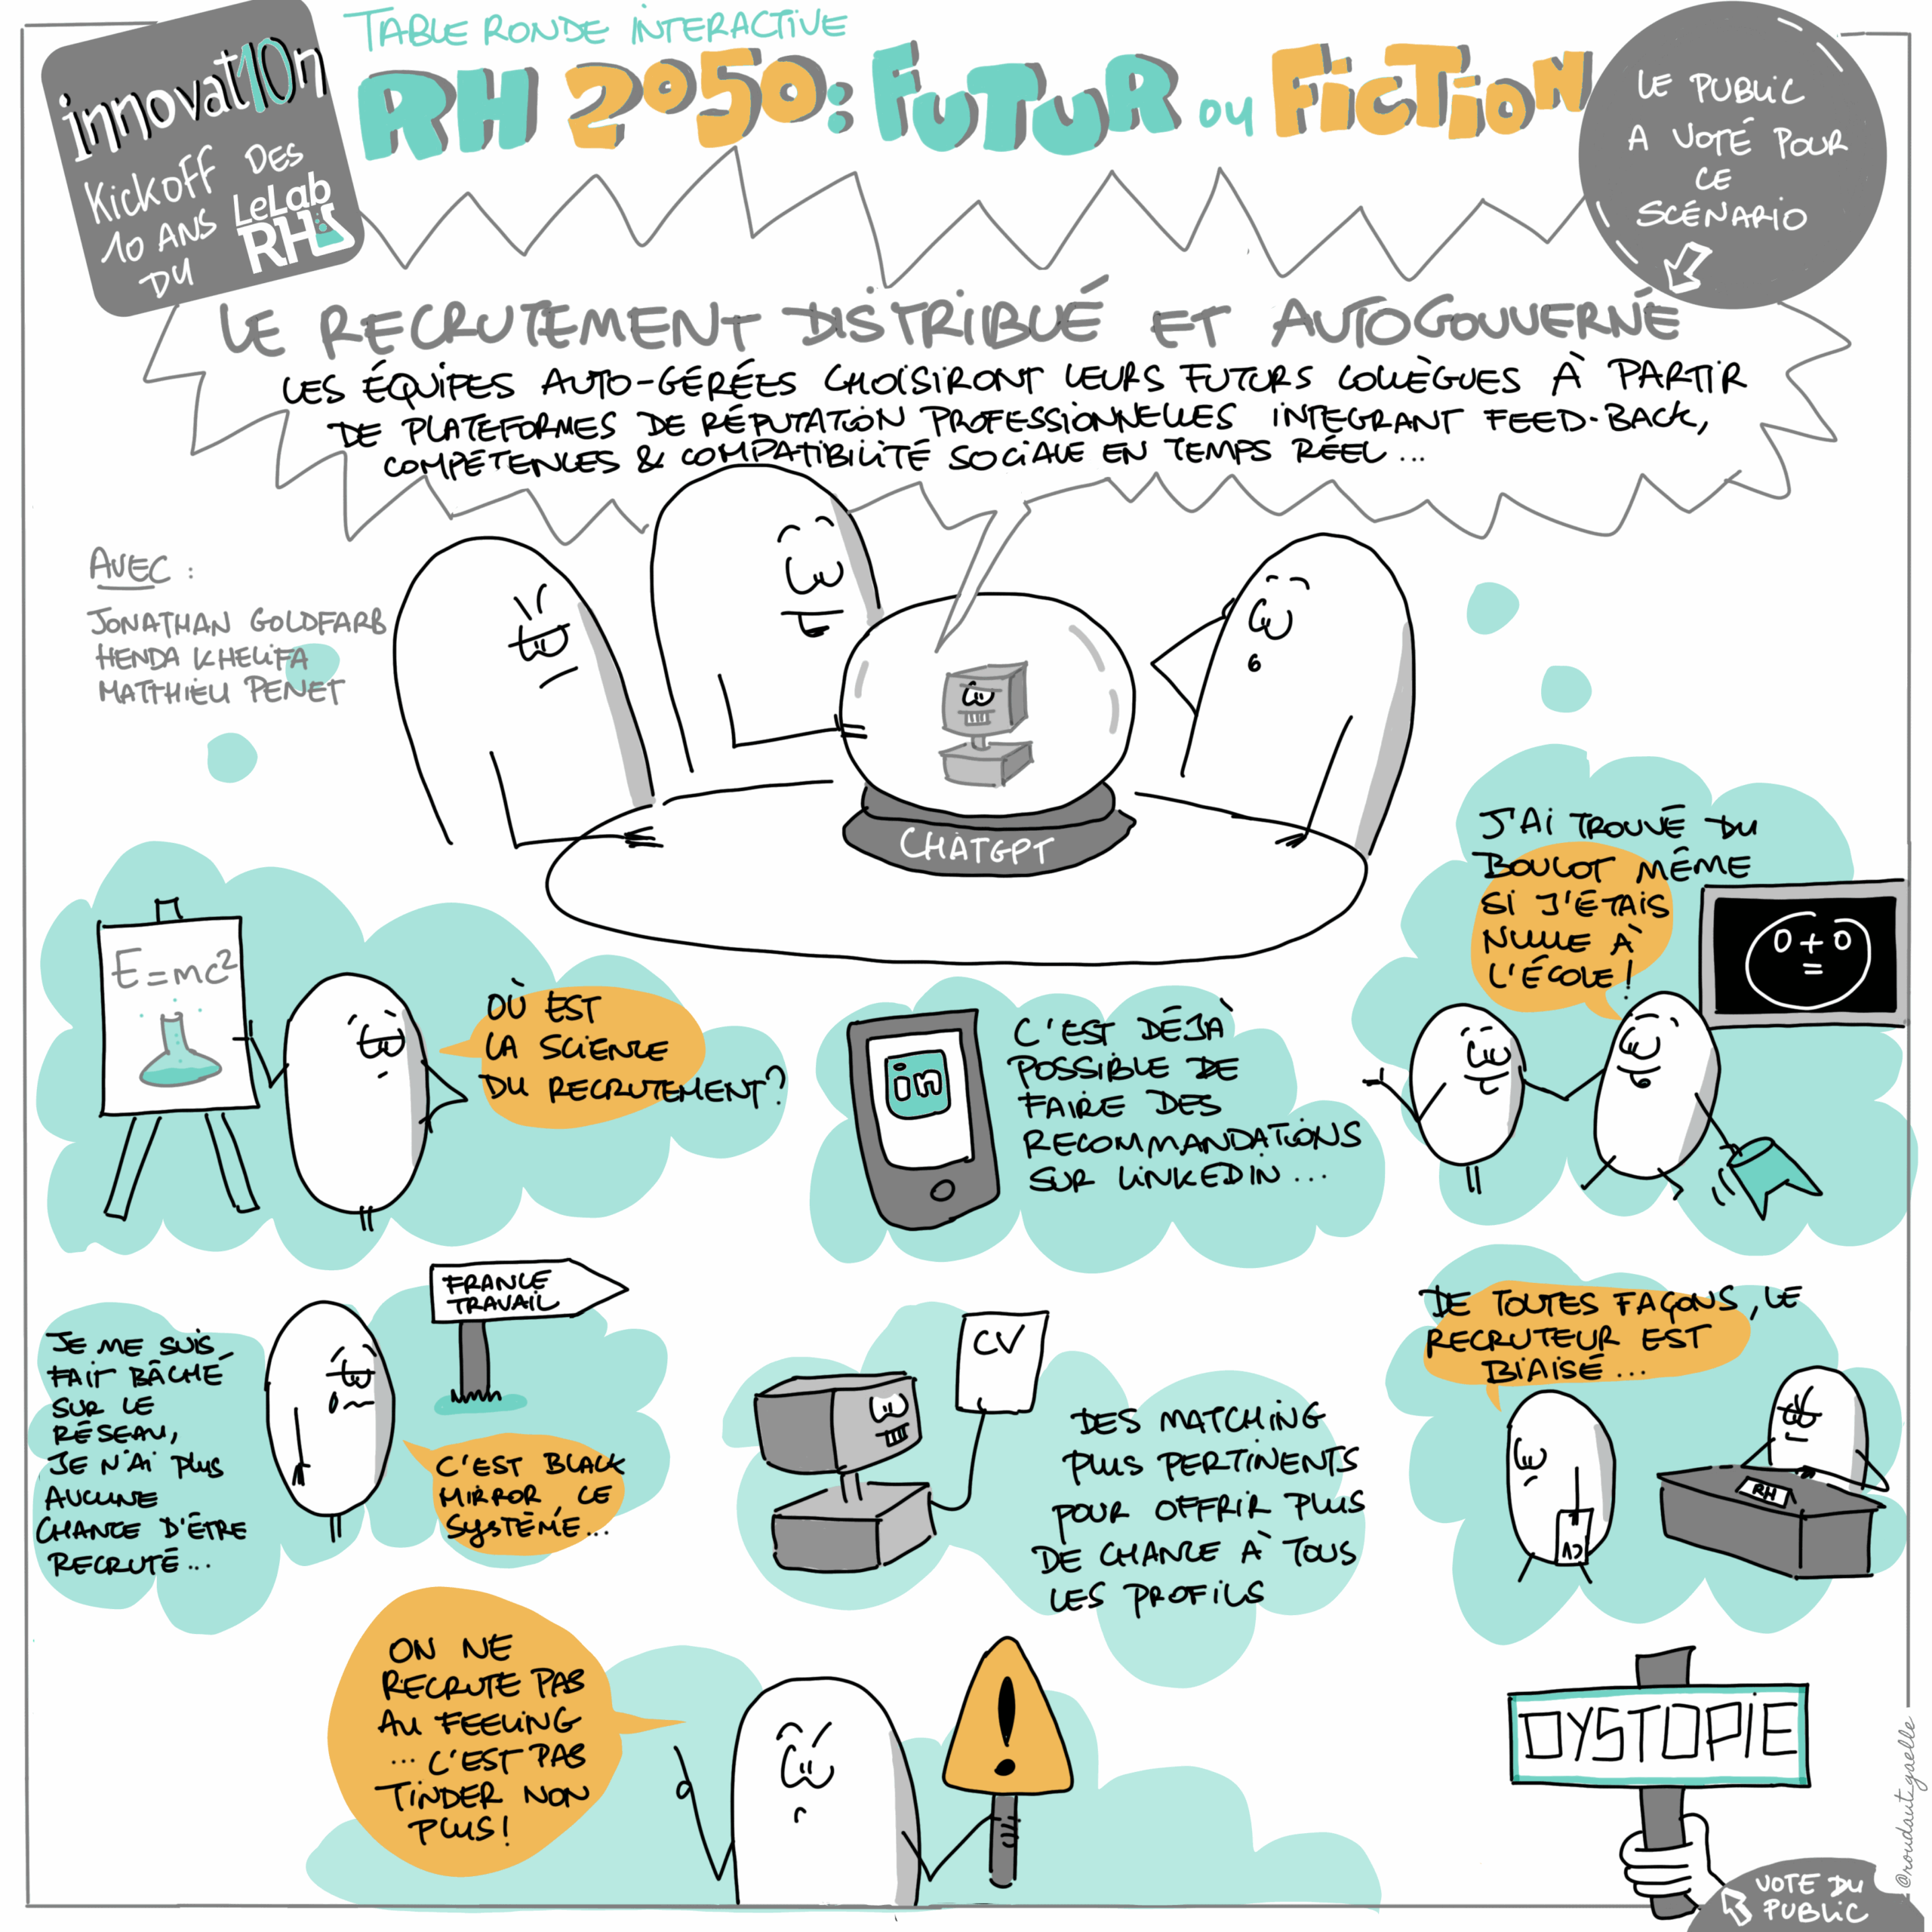 TABLE RONDE INTERACTIVE
RH 2050: FUTUR OU FICTION
innovat10n
KICKOFF DES
10 ANS
DU
LeLab
RH
LE PUBLIC
A VOTÉ POUR
CE
SCÉNARIO
LE RECRUTEMENT DISTRIBUÉ ET AUTOGOUVERNÉ
LES ÉQUIPES AUTO-GÉRÉES CHOISIRONT LEURS FUTURS COLLÈGUES À PARTIR
DE PLATEFORMES DE RÉPUTATION PROFESSIONNELLES INTEGRANT FEED-BACK,
COMPÉTENCES & COMPATIBILITÉ SOCIALE EN TEMPS RÉEL ...
AVEC :
JONATHAN GOLDFARB
HENDA KHELIFA
MATTHIEU PENET
CHATGPT
E=mc²
OÙ EST
LA SCIENCE
DU RECRUTEMENT?
in
C'EST DÉJÀ
POSSIBLE DE
FAIRE DES
RECOMMANDATIONS
SUR LINKEDIN ...
J'AI TROUVÉ DU
BOULOT MÊME
SI J'ÉTAIS
NULLE À
L'ÉCOLE!
0 + 0
=
JE ME SUIS
FAIT BÂCHÉ
SUR LE
RÉSEAU,
JE N'AI PLUS
AUCUNE
CHANCE D'ÊTRE
RECRUTÉ ...
FRANCE
TRAVAIL
C'EST BLACK
MIRROR, CE
SYSTÈME ...
CV
DES MATCHING
PLUS PERTINENTS
POUR OFFRIR PLUS
DE CHANCE À TOUS
LES PROFILS
DE TOUTES FAÇONS, LE
RECRUTEUR EST
BIAISÉ ...
CV
RH
ON NE
RECRUTE PAS
AU FEELING
... C'EST PAS
TINDER NON
PLUS!
!
DYSTOPIE
VOTE DU
PUBLIC
@roudautgaelle